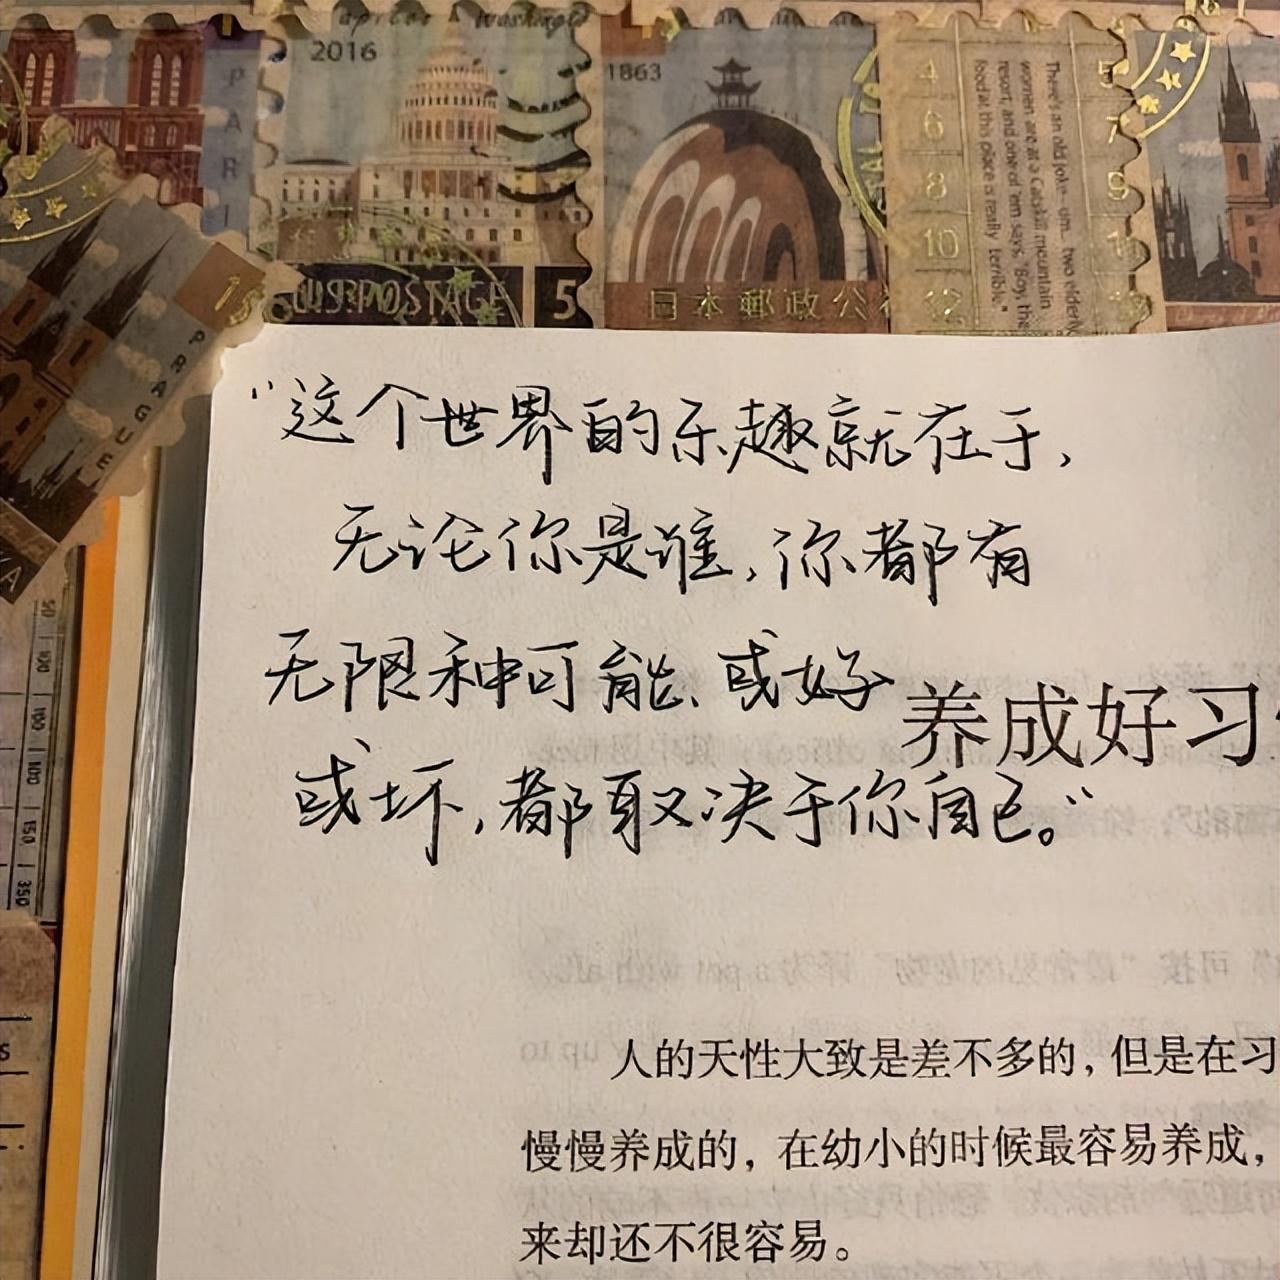 2016
1863
PARI
U.S. POSTAGE 5
日本郵政公
4 5
6 7
8 9
10
12
There's an old joke - um... two elderly
women are at a Catskill mountain
resort, and one of 'em says, "Boy, the
food at this place is really terrible."
PRAGUE
“这个世界的乐趣就在于,
无论你是谁,你都有
无限种可能、或好
或坏,都取决于你自己。”
养成好习
人的天性大致是差不多的,但是在习
慢慢养成的,在幼小的时候最容易养成,
来却还不很容易。